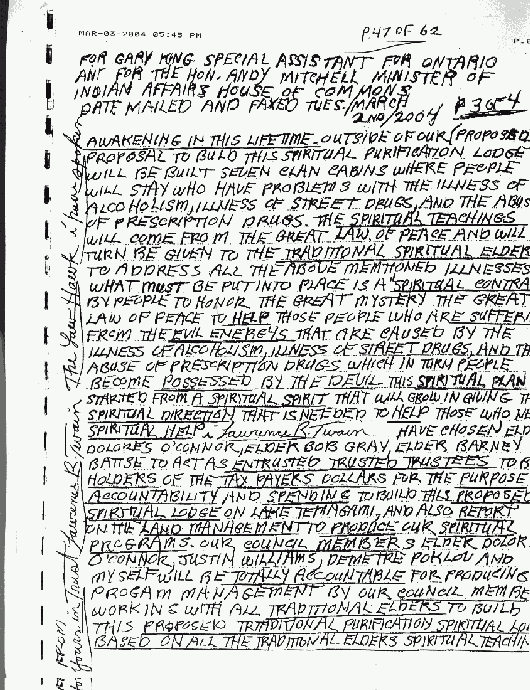 MAR-03-2004 05:45 PM
P47 OF 62
FOR GARY KING SPECIAL ASSISTANT FOR ONTARIO
ANT FOR THE HON. ANDY MITCHELL MINISTER OF
INDIAN AFFAIRS HOUSE OF COMMONS
DATE MAILED AND FAXED TUES. MARCH
2ND/2004 P 3 OF 4
AWAKENING IN THIS LIFETIME. OUTSIDE OF OUR (PROPOSED
PROPOSAL TO BUILD THIS SPIRITUAL PURIFICATION LODGE
WILL BE BUILT SEVEN CLAN CABINS WHERE PEOPLE
WILL STAY WHO HAVE PROBLEMS WITH THE ILLNESS OF
ALCOHOLISM, ILLNESS OF STREET DRUGS, AND THE ABUS
OF PRESCRIPTION DRUGS. THE SPIRITUAL TEACHINGS
WILL COME FROM THE GREAT LAW OF PEACE AND WILL
TURN BE GIVEN TO THE TRADITIONAL SPIRITUAL ELDER
TO ADDRESS ALL THE ABOVE MENTIONED ILLNESSES
WHAT MUST BE PUT INTO PLACE IS A "SPIRITUAL CONTRA
BY PEOPLE TO HONOR THE GREAT MYSTERY THE GREAT
LAW OF PEACE TO HELP THOSE PEOPLE WHO ARE SUFFERIN
FROM THE EVIL ENERGYS THAT ARE CAUSED BY THE
ILLNESS OF ALCOHOLISM, ILLNESS OF STREET DRUGS, AND TH
ABUSE OF PRESCRIPTION DRUGS WHICH IN TURN PEOPLE
BECOME POSSESSED BY THE DEVIL THIS SPIRITUAL PLAN
STARTED FROM A SPIRITUAL SPIRIT THAT WILL GROW IN GIVING TH
SPIRITUAL DIRECTION THAT IS NEEDED TO HELP THOSE WHO NE
SPIRITUAL HELP i Lawrence B. Twain HAVE CHOSEN ELD
DOLORES O'CONNOR, ELDER BOB GRAY, ELDER BARNEY
BATISE TO ACT AS ENTRUSTED TRUSTED TRUSTEES TO B
HOLDERS OF THE TAX PAYERS DOLLARS FOR THE PURPOSE
ACCOUNTABILITY AND SPENDING TO BUILD THIS PROPOSED
SPIRITUAL LODGE ON LAKE TEMAGAMI, AND ALSO REPORT
ON THE LAND MANAGEMENT TO PRODUCE OUR SPIRITUAL
PROGRAMS. OUR COUNCIL MEMBERS ELDER DOLOR
O'CONNOR, JUSTIN WILLIAMS, DEMETRE POKLOV AND
MYSELF WILL BE TOTALLY ACCOUNTABLE FOR PRODUCING
PROGAM MANAGEMENT BY OUR COUNCIL MEMBE
WORKING WITH ALL TRADITIONAL ELDERS TO BUILD
THIS PROPOSED TRADITIONAL PURIFICATION SPIRITUAL LO
BASED ON ALL THE TRADITIONAL ELDERS SPIRITUAL TEACHIN
FROM
Yours in Trust Lawrence B. Twain The Law Hawk i have spoken